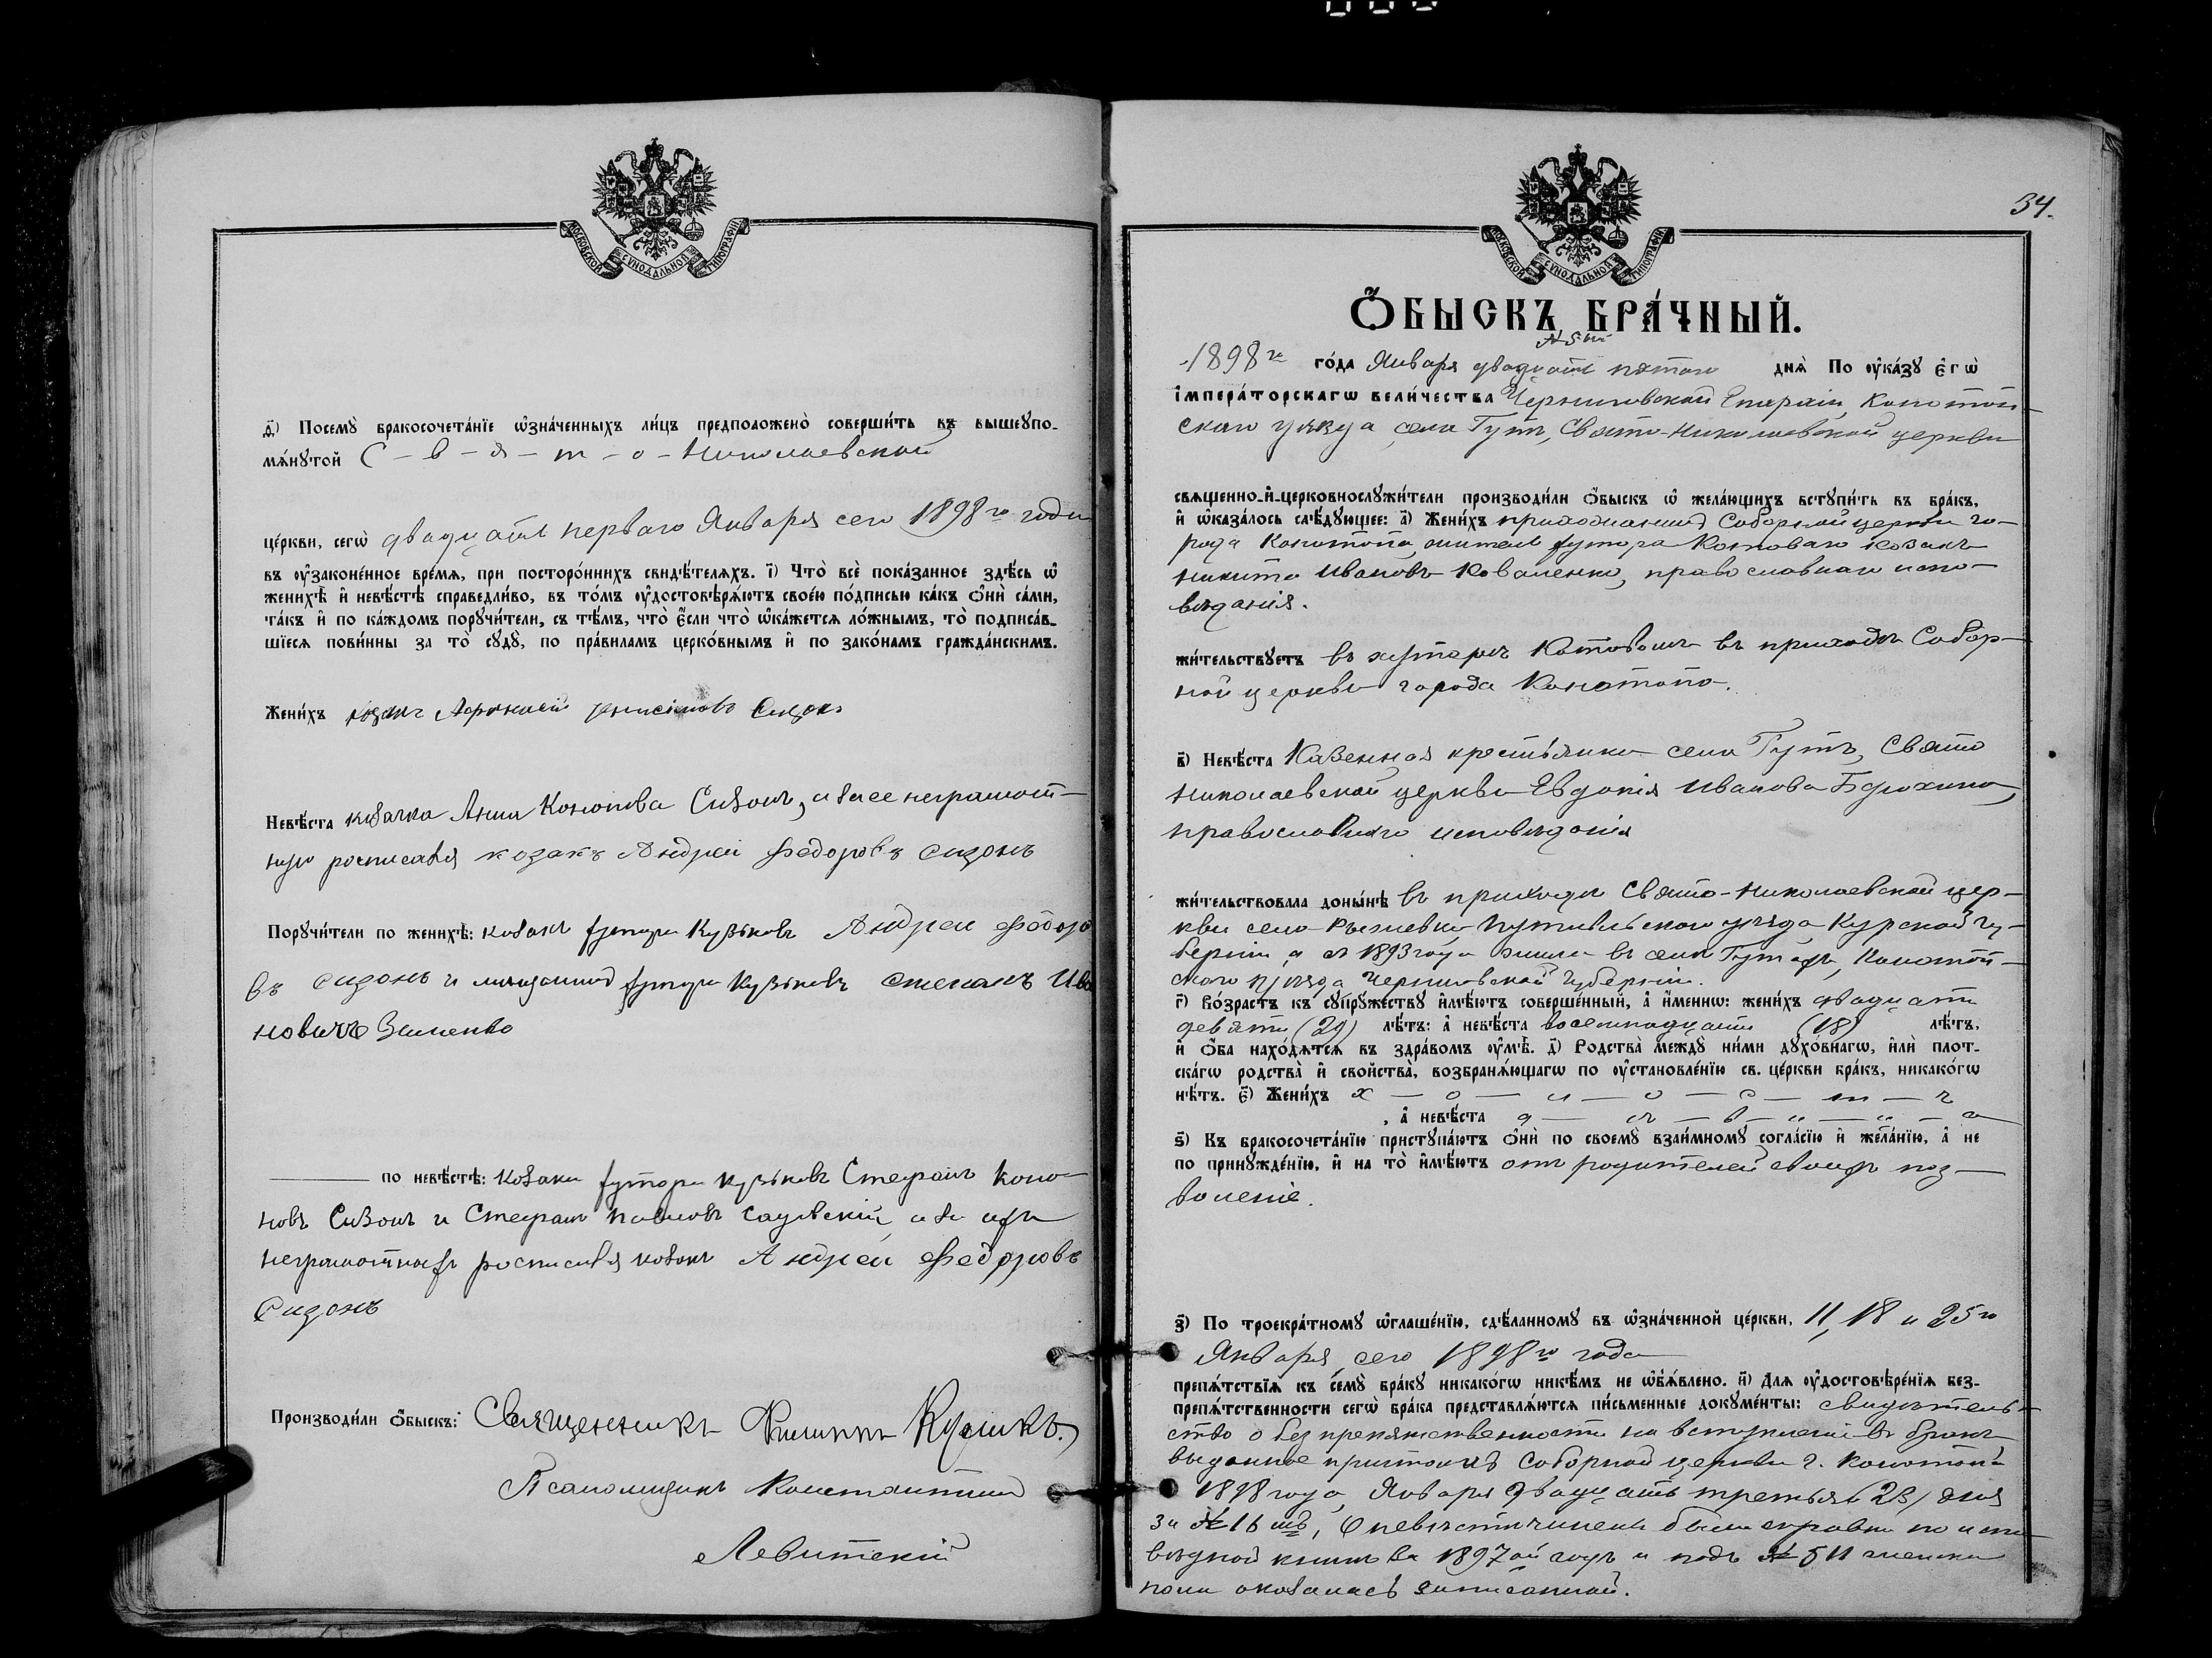 МОСКОВСКОЙ СѴНОДАЛЬНОЙ ТИПОГРАФІИ
д҃) Посемꙋ̀ бракосочета́нїе ѡ҆зна́ченныхъ ли́цъ предположено̀ соверши́ть въ вышеꙋпо-
мѧ́нꙋтой С-в-я-т-о-Николаевской
це́ркви, сегѡ̀ двадцать перваго Января сего 1898го года
въ ᲂу҆законе́нное вре́мѧ, при посторо́ннихъ свидѣ́телѧхъ. і҃) Что̀ всѐ пока́занное здѣ́сь ѡ҆
женихѣ̀ и҆ невѣ́стѣ справедли́во, въ то́мъ ᲂу҆достовѣрѧ́ютъ свое́ю по́дписью ка́къ ѻ҆нѝ са́ми,
та́къ и҆ по ка́ждомъ порꙋчи́тели, съ тѣ́мъ, что̀ є҆́сли что̀ ѡ҆ка́жетсѧ ло́жнымъ, то̀ подписа́в-
шїесѧ пови́нны за то̀ сꙋдꙋ̀, по пра́виламъ церко́внымъ и҆ по зако́намъ гражда́нскимъ.
Жени́хъ козакъ Афанасій Сизонъ
Невѣ́ста козачка Анна Кононова Сизонъ, а за ее неграмот-
ную росписался козакъ Андрей Федоровъ Сизонъ
Порꙋчи́тели по женихѣ̀: козакъ хутора Кузьковъ Андрей Федоро
въ Сизонъ и хутора Кузьковъ Степанъ Ива
новичъ Зименко
по невѣ́стѣ: козаки хутора Кузьковъ Стефанъ Коно-
новъ Сизонъ и Стефанъ Павловъ а за ихъ
неграмотныхъ росписался козакъ Андрей Федоровъ
Сизонъ
Производи́ли ѻ҆́быскъ: Священникъ Филиппъ
Псаломщикъ Константинъ
Левитскій
34.
МОСКОВСКОЙ СѴНОДАЛЬНОЙ ТИПОГРАФІИ
Ѻ҆́БЫСКЪ БРА́ЧНЫЙ.
№ 5ый
1898го го́да Января двадцать пятаго днѧ̀ По ᲂу҆ка́зꙋ є҆гѡ̀
і҆мпера́торскагѡ вели́чества Черниговской Епархіи, Конотоп-
скаго уѣзда села Гутъ, Свято-Николаевской церкви
свѧщенно-и҆-церковнослꙋжи́тели производи́ли ѻ҆́быскъ ѡ҆ жела́ющихъ встꙋпи́ть въ бра́къ,
и҆ ѡ҆каза́лось слѣ́дꙋющее: а҃) Жени́хъ прихожанинъ Соборной церкви го-
рода Конотопа, житель хутора Котоваго козакъ
Никита Ивановъ Коваленко, православнаго испо-
вѣданія.
жи́тельствꙋетъ въ хуторѣ Котовомъ въ приходѣ Собор-
ной церкви города Конотопа.
в҃) Невѣ́ста Казенная крестьянка села Гутъ, Свято
Николаевской церкви Евдокія Иванова
православнаго исповѣданія
жи́тельствовала доны́нѣ въ приходѣ Свято-Николаевской цер-
кви села Путивльскаго уѣзда Курской гу-
берніи, а съ 1893 года жила въ селѣ Гутахъ, Конотоп-
скаго уѣзда Черниговской губерніи.
г҃) Во́зрастъ къ сꙋпрꙋ́жествꙋ и҆мѣ́ютъ соверше́нный, а҆ и҆́меннѡ: жени́хъ двадцати
девяти (29) лѣ́тъ: а҆ невѣ́ста восемнадцати (18) лѣ́тъ,
и҆ ѻ҆́ба нахо́дѧтсѧ въ здра́вомъ ᲂу҆мѣ̀. д҃) Родства̀ междꙋ̀ ни́ми дꙋхо́внагѡ, и҆лѝ плот-
ска́гѡ родства̀ и҆ свойства̀, возбранѧ́ющагѡ по ᲂу҆становле́нїю св. це́ркви бра́къ, никако́гѡ
нѣ́тъ. є҃) Жени́хъ х-о-л-о-с-т-ъ
, а҆ невѣ́ста д-ѣ-в-и-ц-а
ѕ҃) Къ бракосочета́нїю пристꙋпа́ютъ ѻ҆нѝ по своемꙋ̀ взаи́мномꙋ согла́сїю и҆ жела́нїю, а҆ не
по принꙋжде́нїю, и҆ на то̀ и҆мѣ́ютъ отъ родителей своихъ поз-
воленіе.
з҃) По троекра́тномꙋ ѡ҆глаше́нїю, сдѣ́ланномꙋ въ ѡ҆зна́ченной це́ркви, 11, 18 и 25го
Января сего 1898го года
препѧ́тствїѧ къ семꙋ̀ бра́кꙋ никако́гѡ никѣ́мъ не ѡ҆б̾ѧ́влено. и҃) Длѧ ᲂу҆достовѣре́нїѧ без-
препѧ́тственности сегѡ̀ бра́ка представлѧ́ютсѧ пи́сьменные докꙋме́нты: свидѣтель-
ство о безпрепятственности на вступленіе въ бракъ
выданное причтомъ Соборной церкви г. Конотопа
1898 года, Января двадцать третьяго (23) дня
за № 16мъ, О невѣстѣ была справка по испо
вѣдной книгѣ за 1897ой годъ и подъ № 511 женска
пола оказалась записанной.